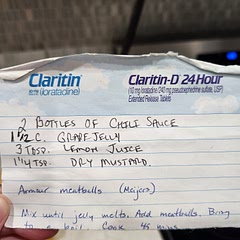 Claritin
(loratadine)
Claritin-D 24 Hour
(10 mg loratadine/240 mg pseudoephedrine sulfate, USP)
Extended Release Tablets
2 BOTTLES OF CHILI SAUCE
1 1/2 C. GRAPE JELLY
3 TBSP. LEMON JUICE
1 1/4 TSP. DRY MUSTARD.
Armour meatballs (Meijers)
Mix until jelly melts. Add meatballs. Bring
to a boil. Cook 45 mins